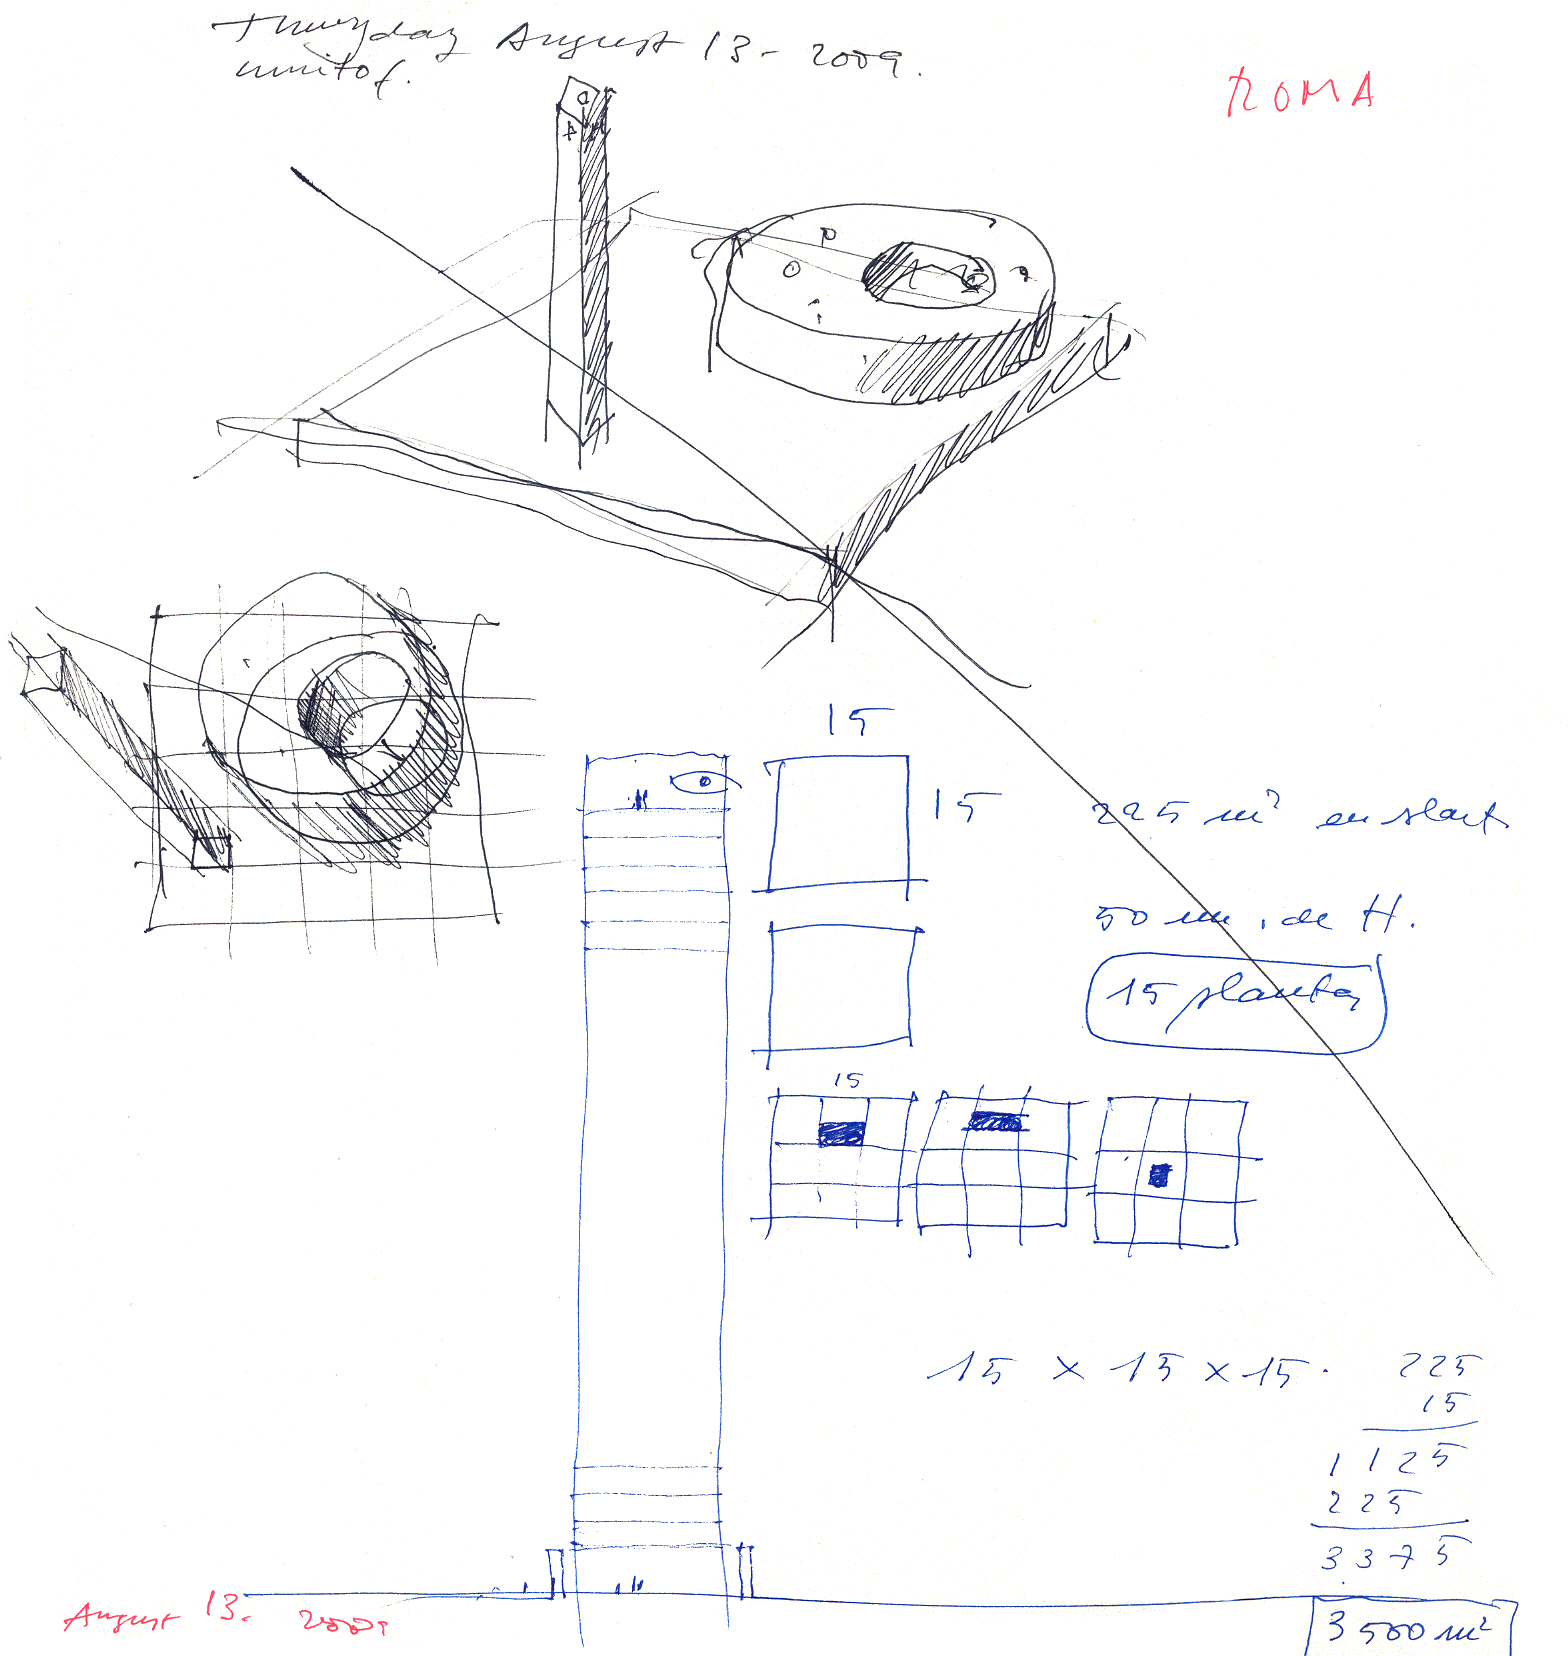 Thursday August 13 - 2009.
ROMA
15
15
225 m² en planta
50 m. de H.
15 plantas
15
15 x 15 x 15.
225
15
1125
225
3375
3500 m²
August 13. 2009